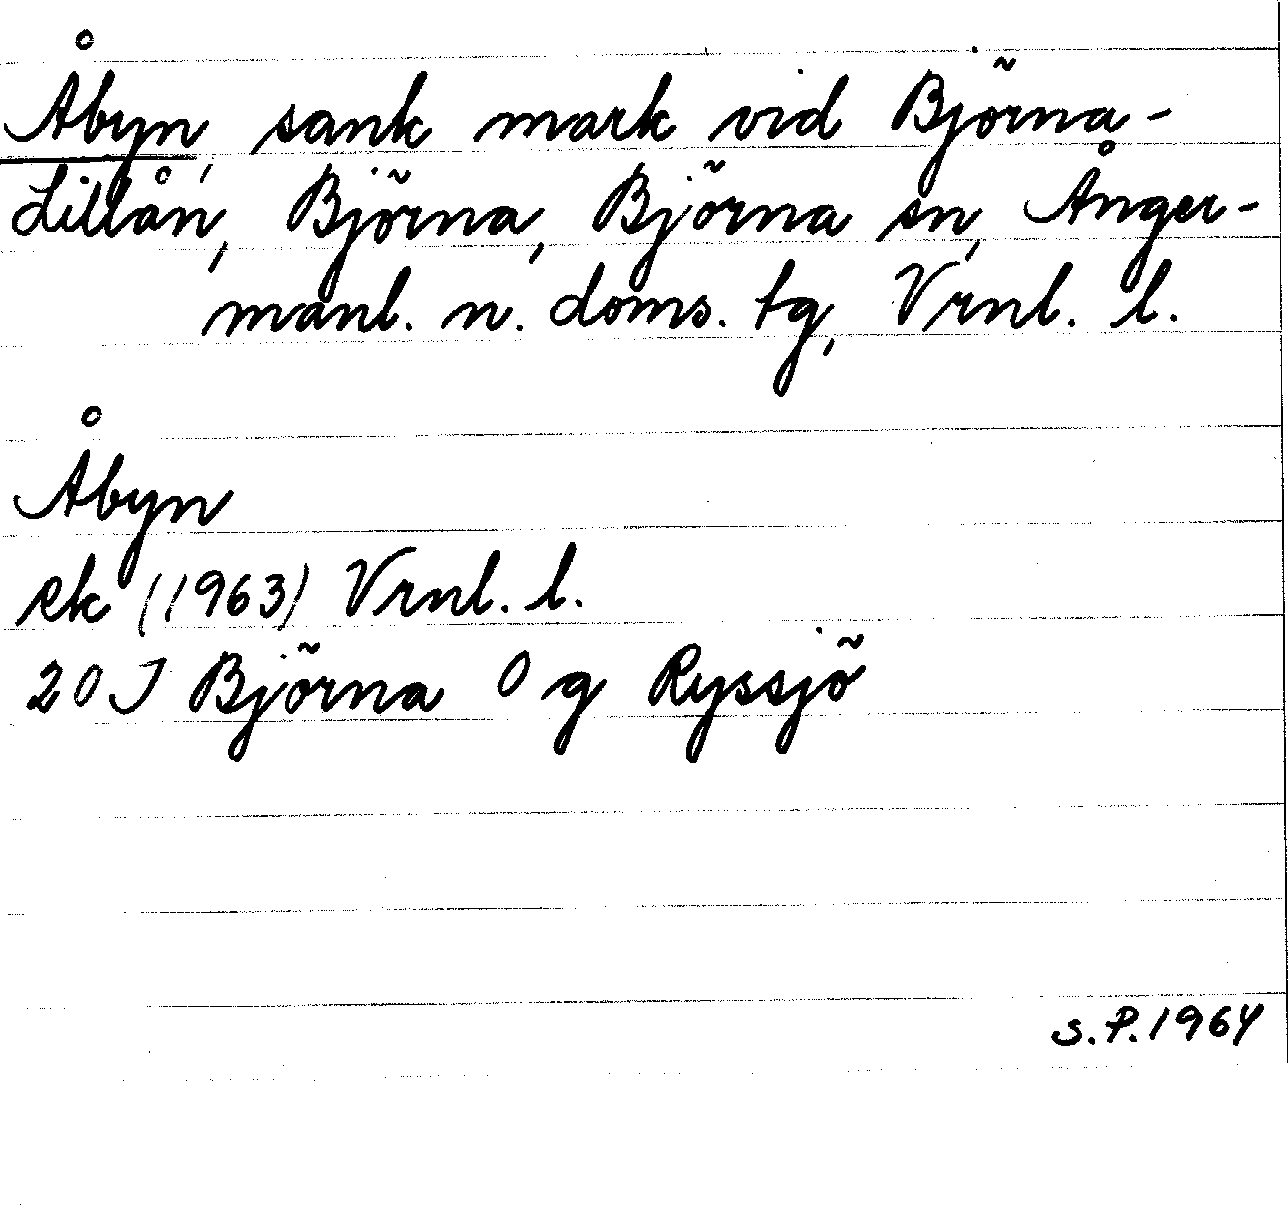 Åbyn, sank mark vid Björna-
Lillån, Björna, Björna sn, Ånger-
manl. n. doms. tg, Vrnl. l.
Åbyn
ek (1963) Vrnl. l.
20 J Björna 0 g Ryssjö
S.P.1964